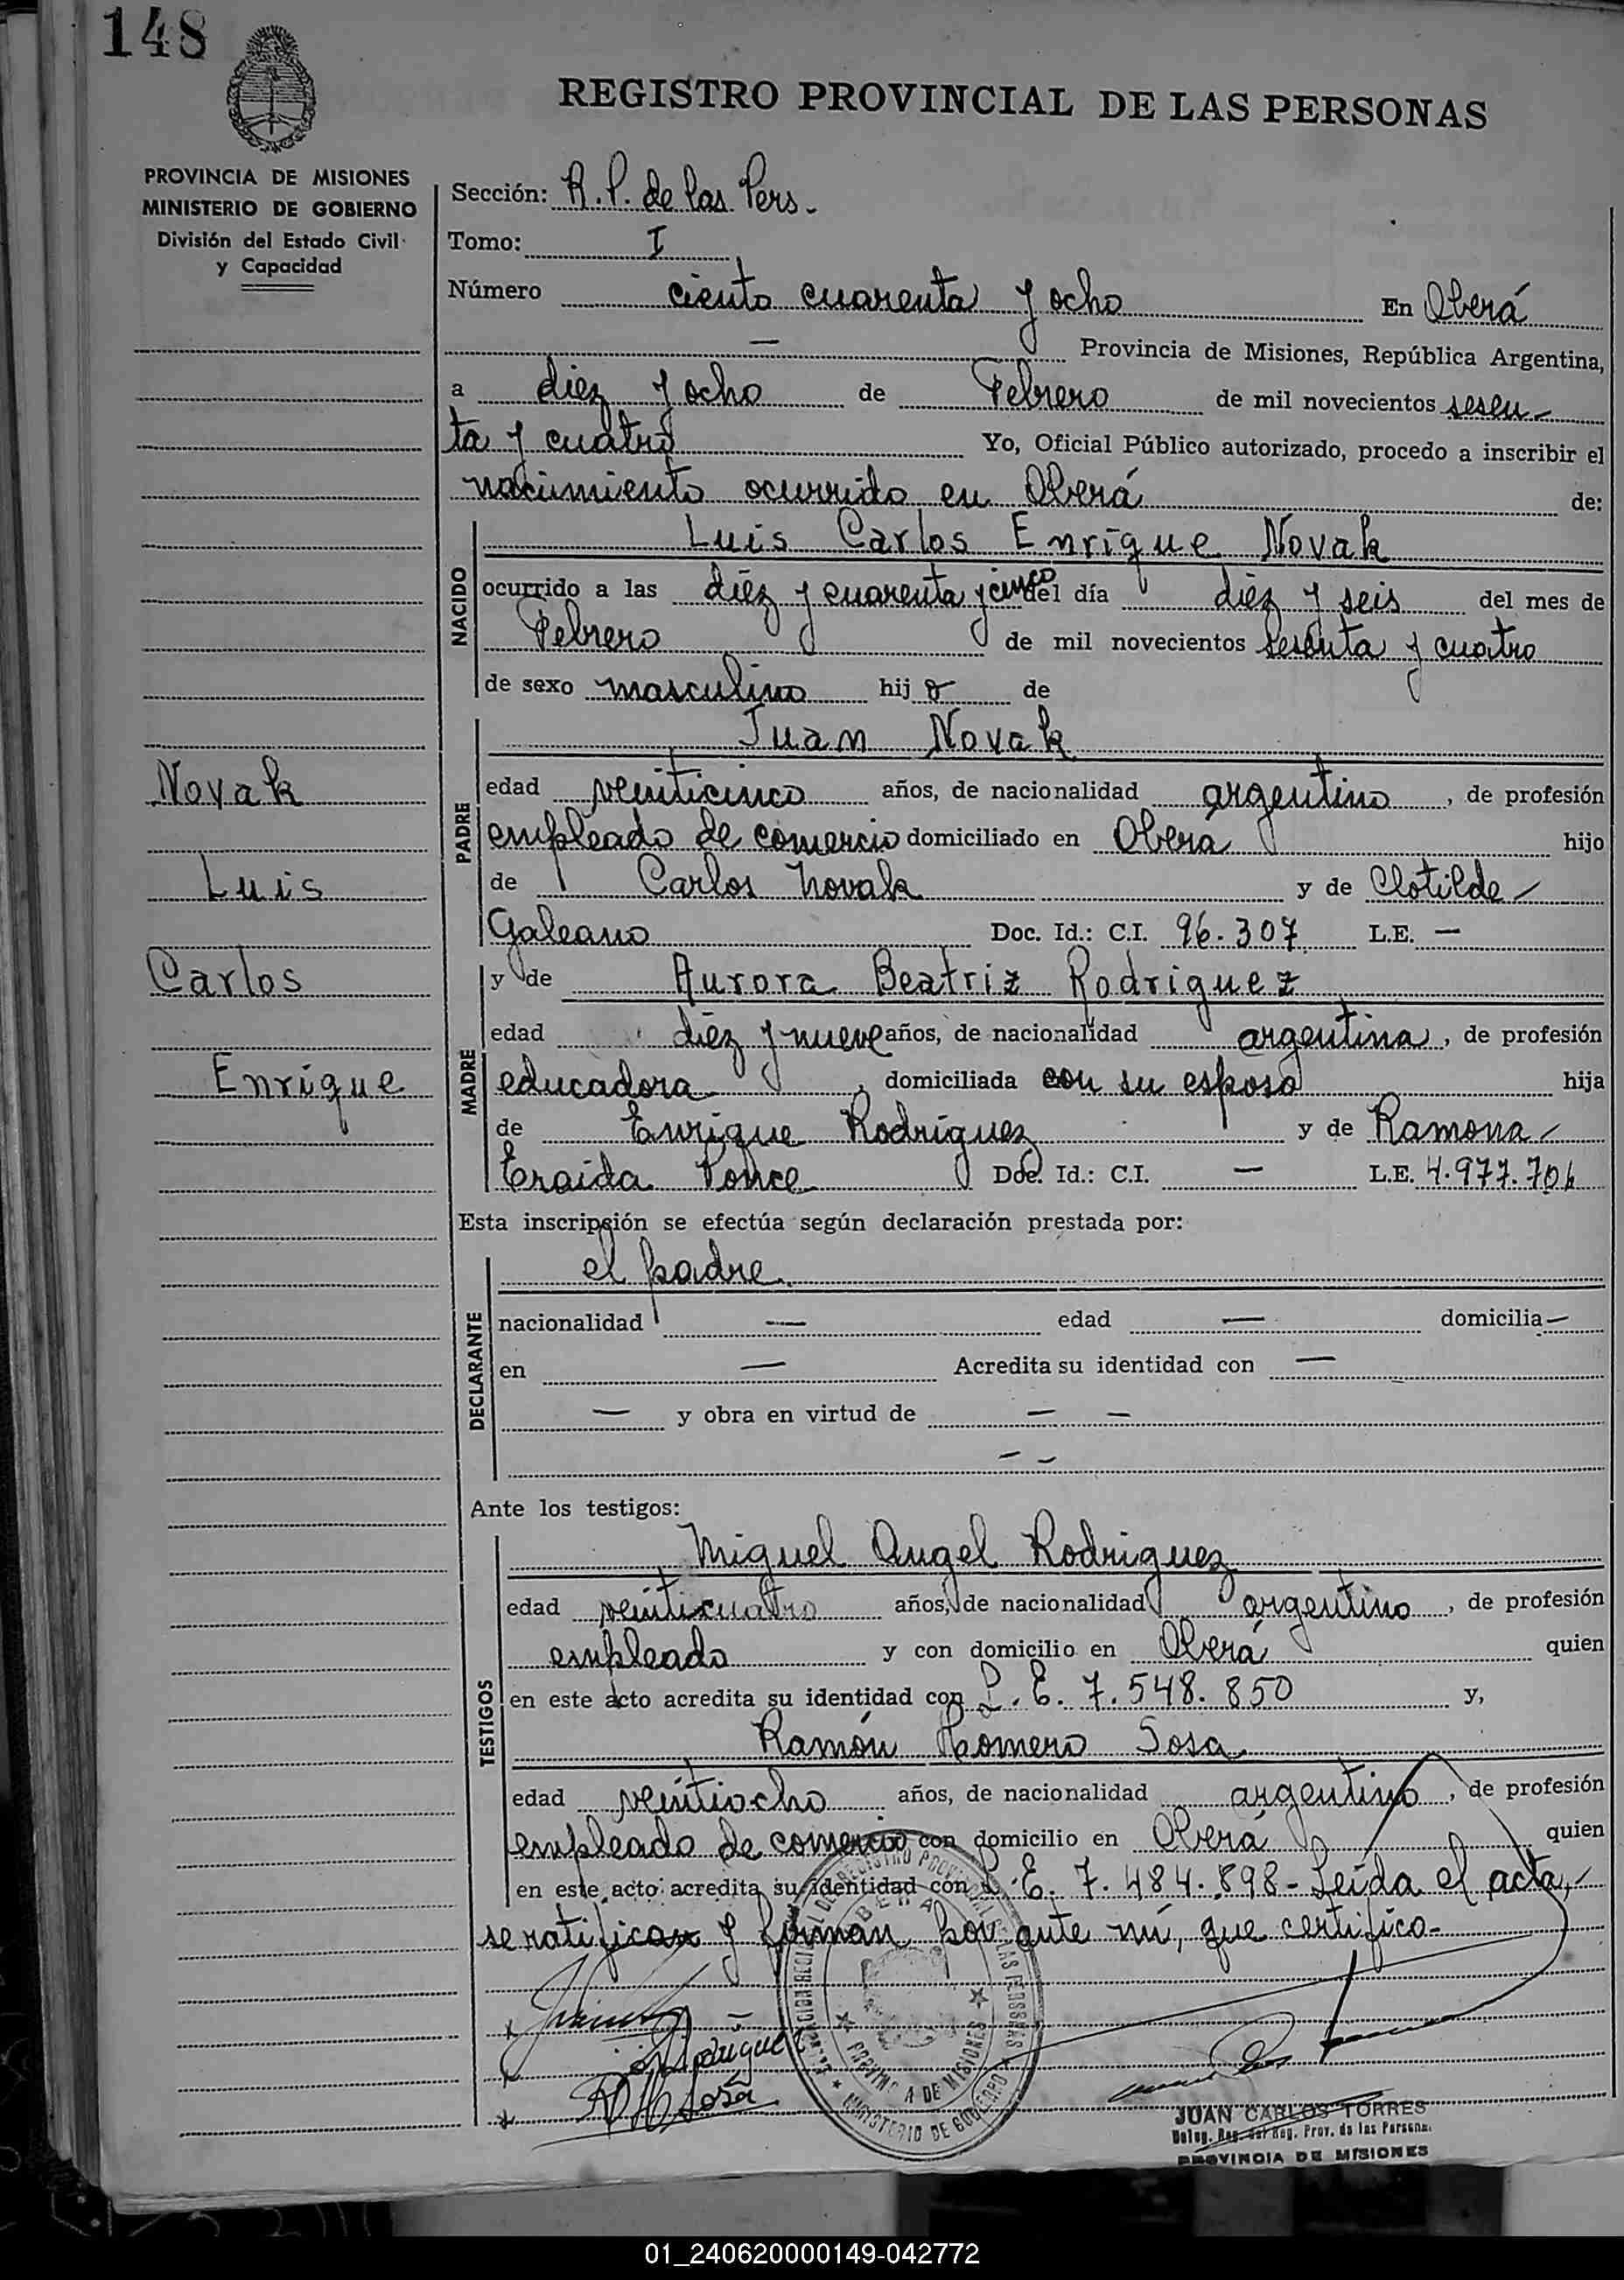 148
REGISTRO PROVINCIAL DE LAS PERSONAS
PROVINCIA DE MISIONES
MINISTERIO DE GOBIERNO
División del Estado Civil
y Capacidad
Sección: R. P. de las Pers.
Tomo: I
Número ciento cuarenta y ocho En Oberá
— Provincia de Misiones, República Argentina,
a diez y ocho de Febrero de mil novecientos sesen-
ta y cuatro Yo, Oficial Público autorizado, procedo a inscribir el
nacimiento ocurrido en Oberá de:
NACIDO
Luis Carlos Enrique Novak
ocurrido a las diez y cuarenta y cinco del día diez y seis del mes de
Febrero de mil novecientos sesenta y cuatro
de sexo masculino hijo de
PADRE
Juan Novak
edad veinticinco años, de nacionalidad argentino, de profesión
empleado de comercio domiciliado en Oberá hijo
de Carlos Novak y de Clotilde
Galeano Doc. Id.: C.I. 96.307 L.E. —
Novak
Luis
Carlos
Enrique
MADRE
y de Aurora Beatriz Rodriguez
edad diez y nueve años, de nacionalidad argentina, de profesión
educadora, domiciliada con su esposo hija
de Enrique Rodríguez y de Ramona
Eraida Ponce Doc. Id.: C.I. — L.E. 4.977.706
Esta inscripsión se efectúa según declaración prestada por:
DECLARANTE
el padre
nacionalidad — edad — domicilia—
en — Acredita su identidad con —
— y obra en virtud de — —
— —
Ante los testigos:
TESTIGOS
Miguel Angel Rodriguez
edad veinticuatro años, de nacionalidad argentino, de profesión
empleado y con domicilio en Oberá quien
en este acto acredita su identidad con L. E. 7.548.850 y,
Ramón Romero Sosa
edad veintiocho años, de nacionalidad argentino, de profesión
empleado de comercio con domicilio en Oberá quien
en este acto acredita su identidad con L. E. 7.484.898- Leída el acta,
se ratifican y firman por ante mí, que certifico-
OBERÁ
PROVINCIA DE MISIONES
MINISTERIO DE GOBIERNO
JUAN CARLOS TORRES
Deleg. Reg. del Reg. Prov. de las Personas
PROVINCIA DE MISIONES
01_240620000149-042772